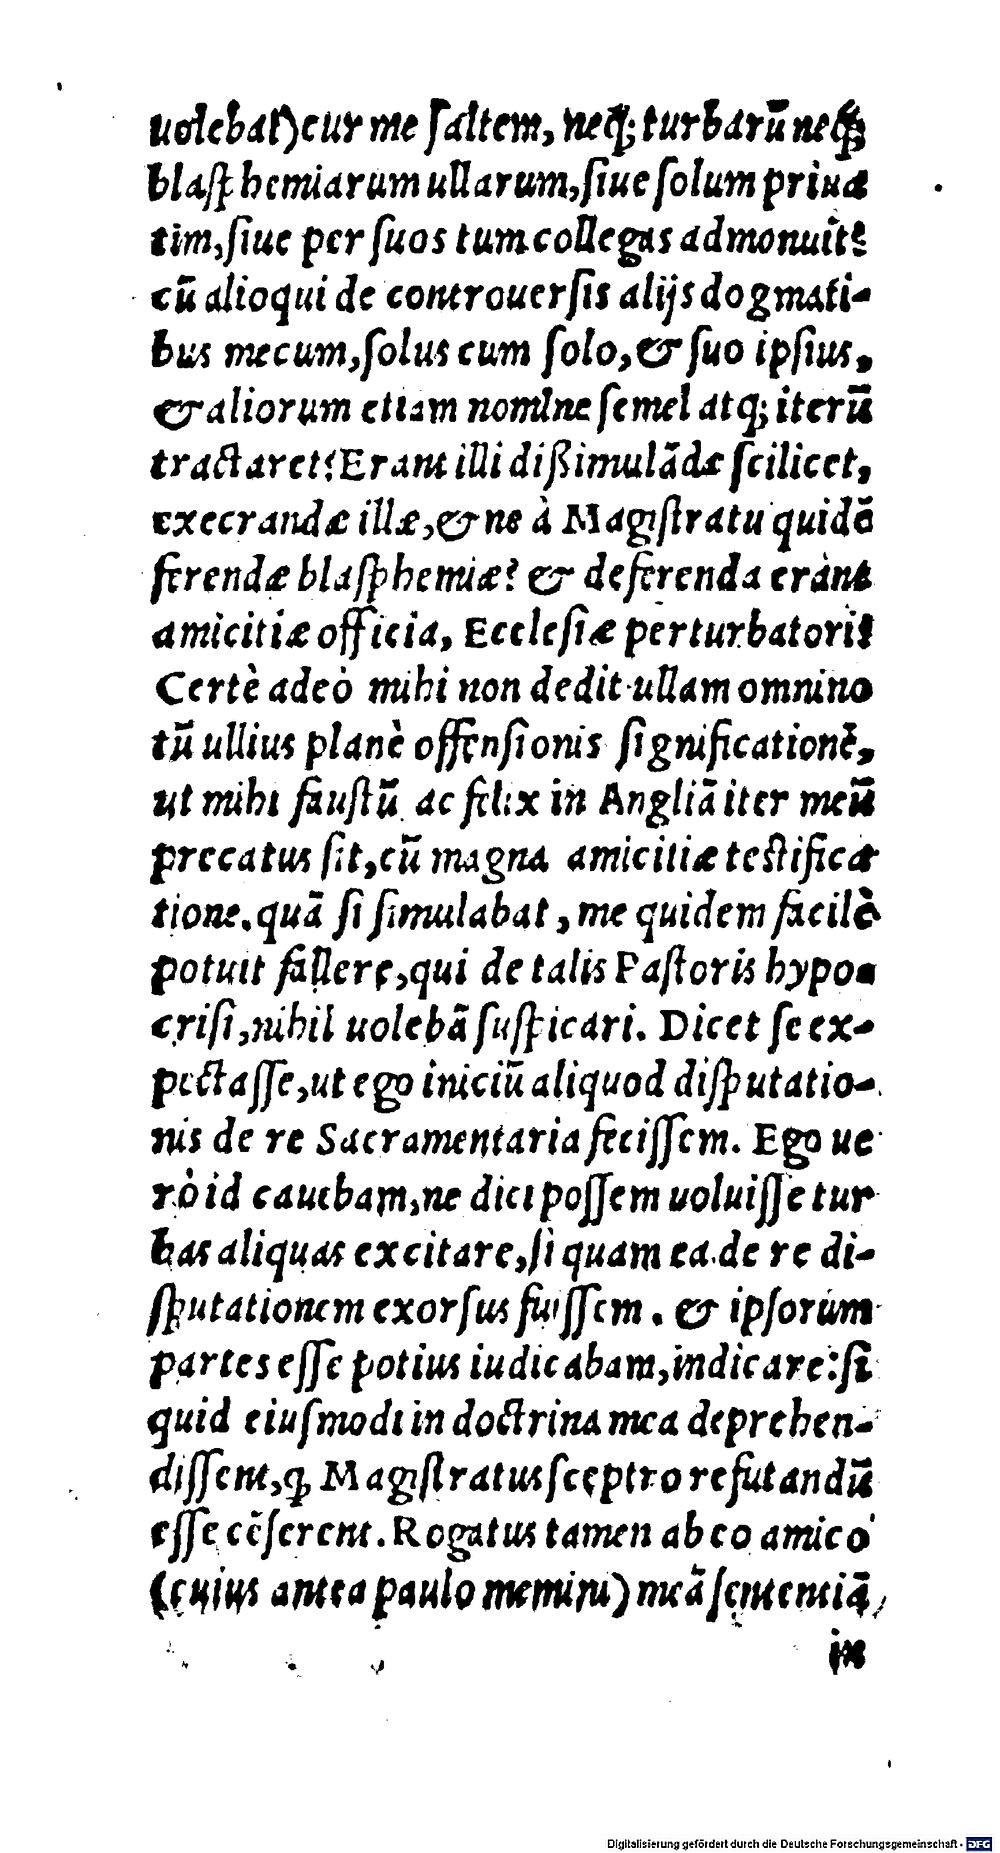 uolebat) cur me saltem, neq; turbarũ neq;
blasphemiarum ullarum, siue solum priua
tim, siue per suos tum collegas admonuit?
cũ alioqui de controuersis alijs dogmati-
bus mecum, solus cum solo, & suo ipsius,
& aliorum etiam nomine semel atq; iterũ
tractaret? Erant illi dißimulãdæ scilicet,
execrandæ illæ, & ne à Magistratu quidẽ
ferendæ blasphemiæ? & deferenda erant
amicitiæ officia, Ecclesiæ perturbatori?
Certè adeò mihi non dedit ullam omnino
tũ ullius planè offensionis significationẽ,
ut mihi faustũ ac felix in Angliã iter meũ
precatus sit, cũ magna amicitiæ testifica
tione. quã si simulabat, me quidem facilè
potuit fallere, qui de talis Pastoris hypo-
crisi, nihil uolebã suspicari. Dicet se ex-
pectasse, ut ego iniciũ aliquod disputatio-
nis de re Sacramentaria fecissem. Ego ue
rò id cauebam, ne dici possem uoluisse tur
bas aliquas excitare, si quam ea de re di-
sputationem exorsus fuissem. & ipsorum
partes esse potius iudicabam, indicare: si
quid eiusmodi in doctrina mea deprehen-
dissent, ꝙ Magistratus sceptro refutandũ
esse cẽserent. Rogatus tamen ab eo amico
(cuius antea paulo memini) meã sententiã,
in
Digitalisierung gefördert durch die Deutsche Forschungsgemeinschaft - DFG